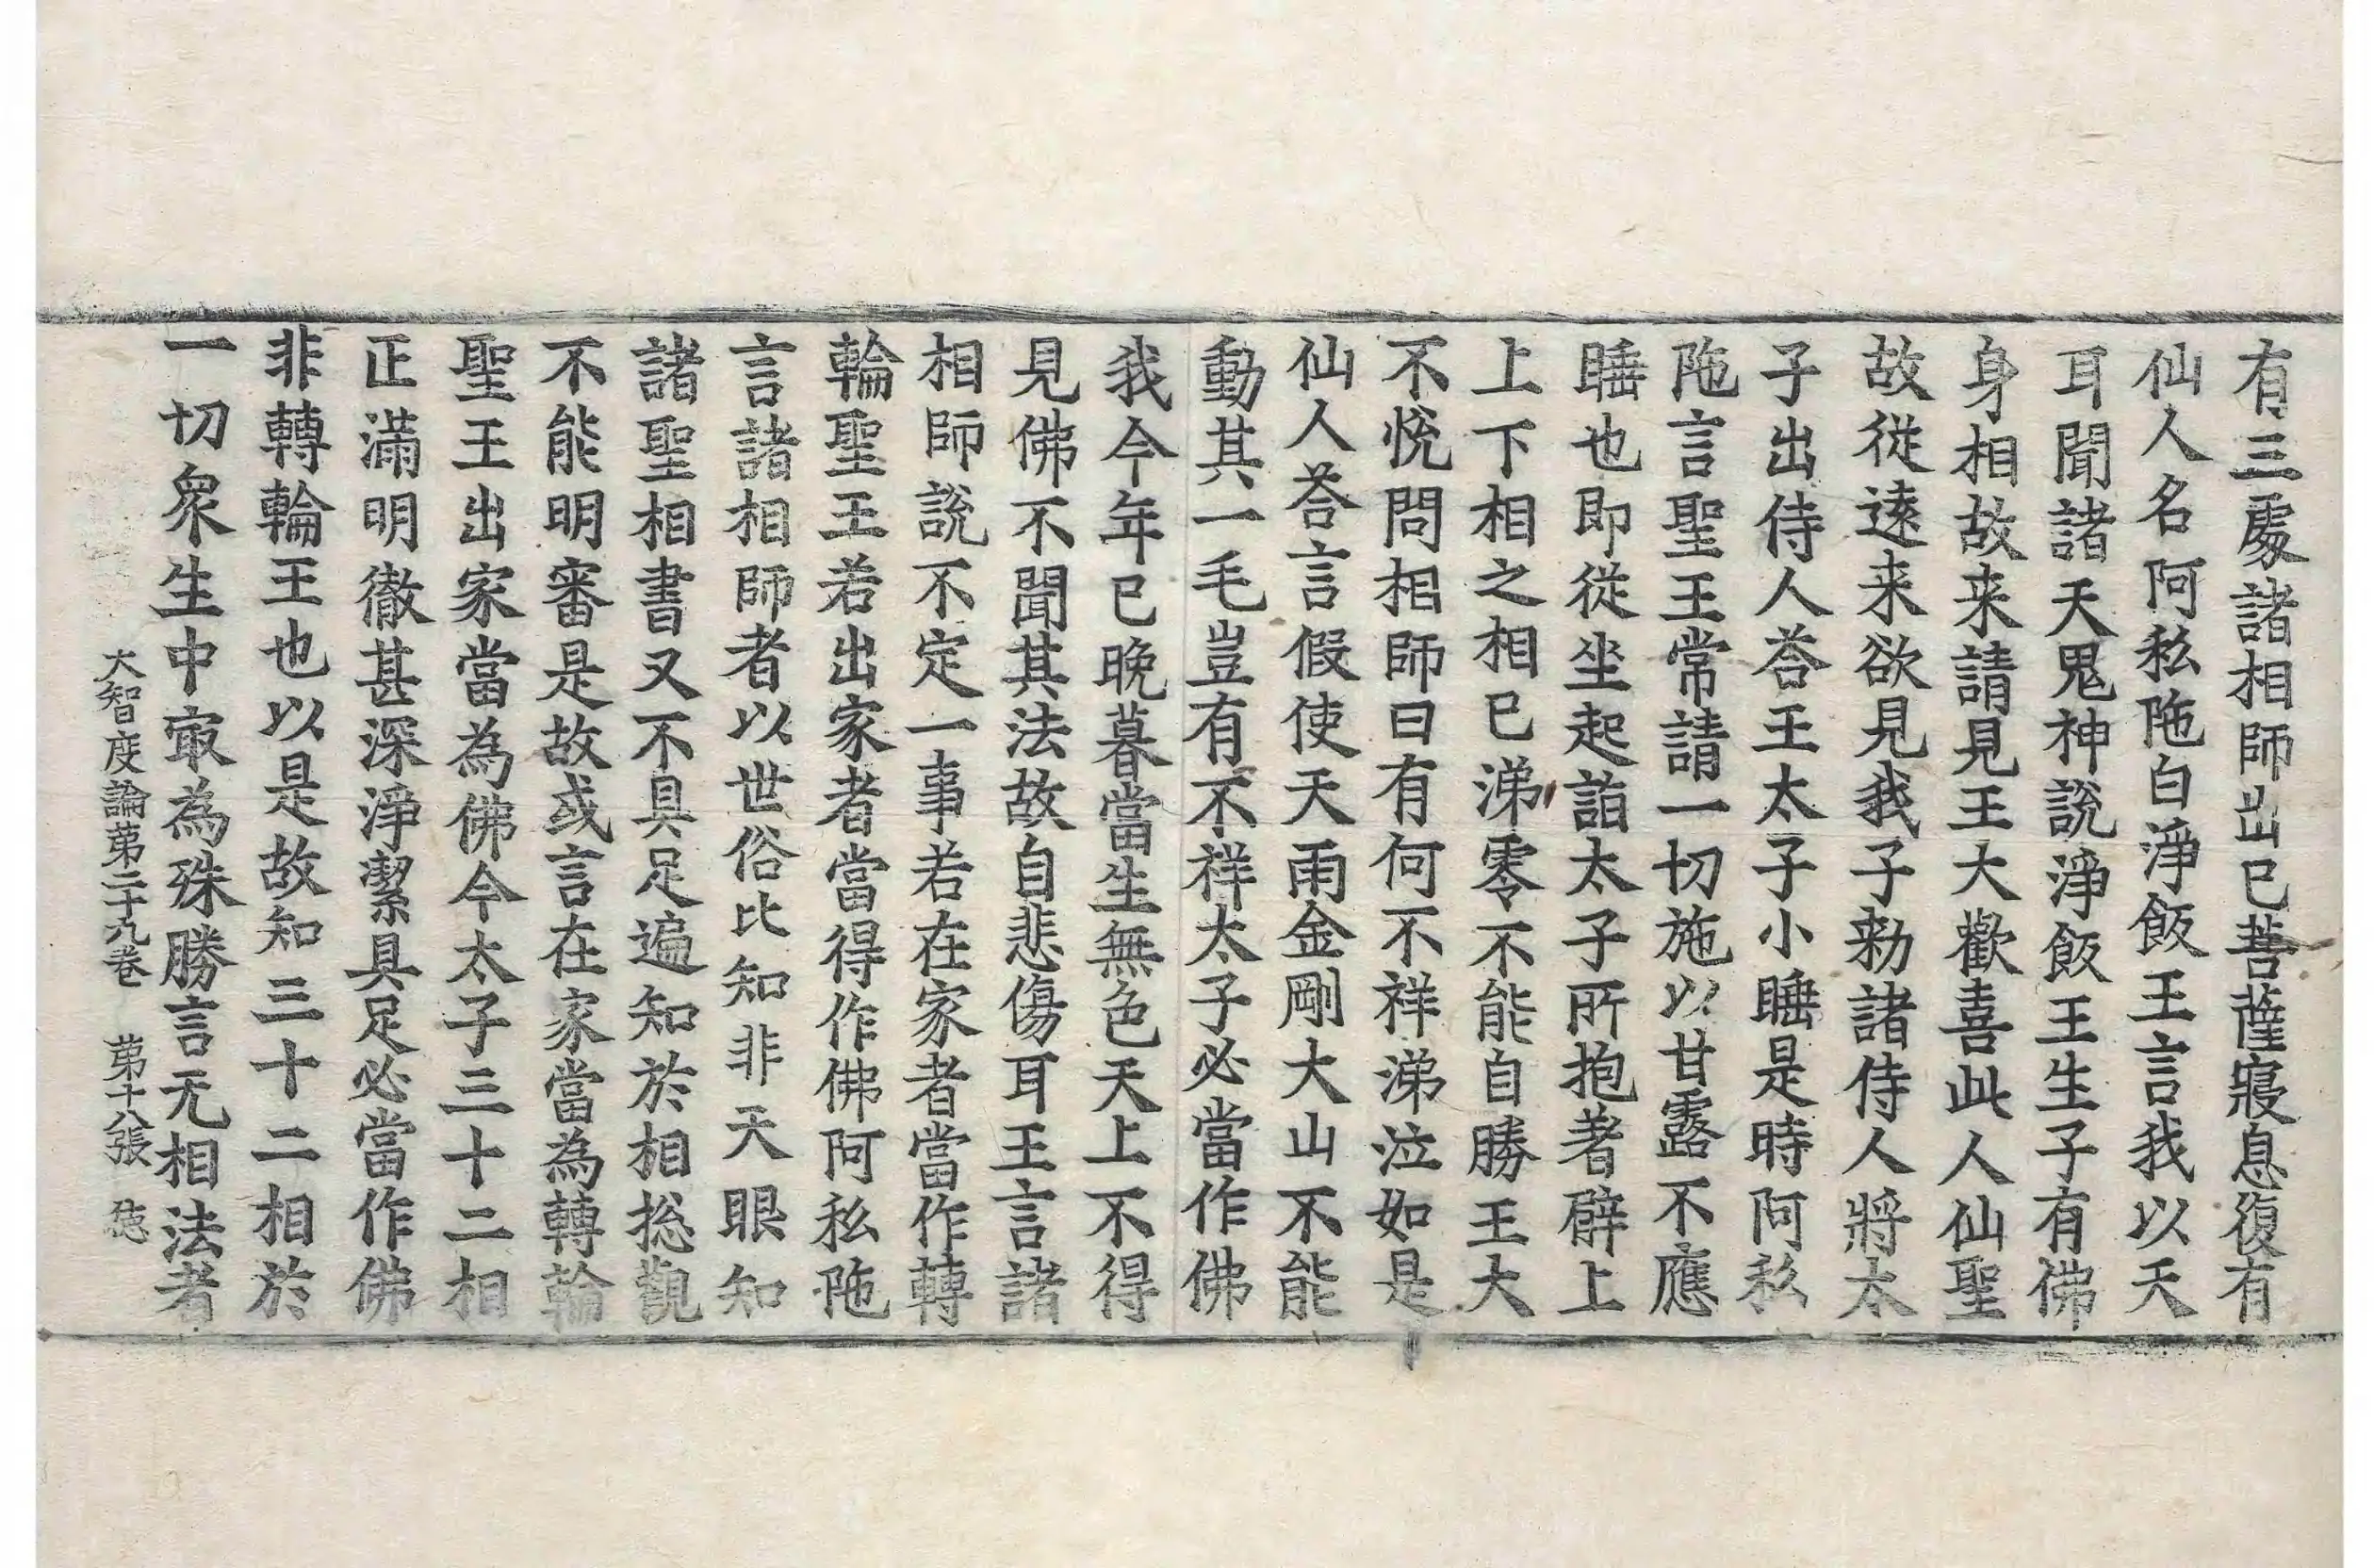 有三處諸相師出已菩薩寢息復有
仙人名阿私陁白淨飯王言我以天
耳聞諸天鬼神說淨飯王生子有佛
身相故来請見王大歡喜此人仙聖
故從遠来欲見我子勑諸侍人將太
子出侍人荅王太子小睡是時阿私
陁言聖王常請一切施以甘露不應
睡也即從坐起詣太子所抱著臂上
上下相之相已涕零不能自勝王大
不悅問相師曰有何不祥涕泣如是
仙人荅言假使天雨金剛大山不能
動其一毛豈有不祥太子必當作佛
我今年已晚暮當生無色天上不得
見佛不聞其法故自悲傷耳王言諸
相師說不定一事若在家者當作轉
輪聖王若出家者當得作佛阿私陁
言諸相師者以世俗比知非天眼知
諸聖相書又不具足遍知於相捴觀
不能明審是故或言在家當為轉輪
聖王出家當為佛今太子三十二相
正滿明徹甚深淨潔具足必當作佛
非轉輪王也以是故知三十二相於
一切衆生中㝡為殊勝言无相法者
大智度論第二十九卷 第十八張